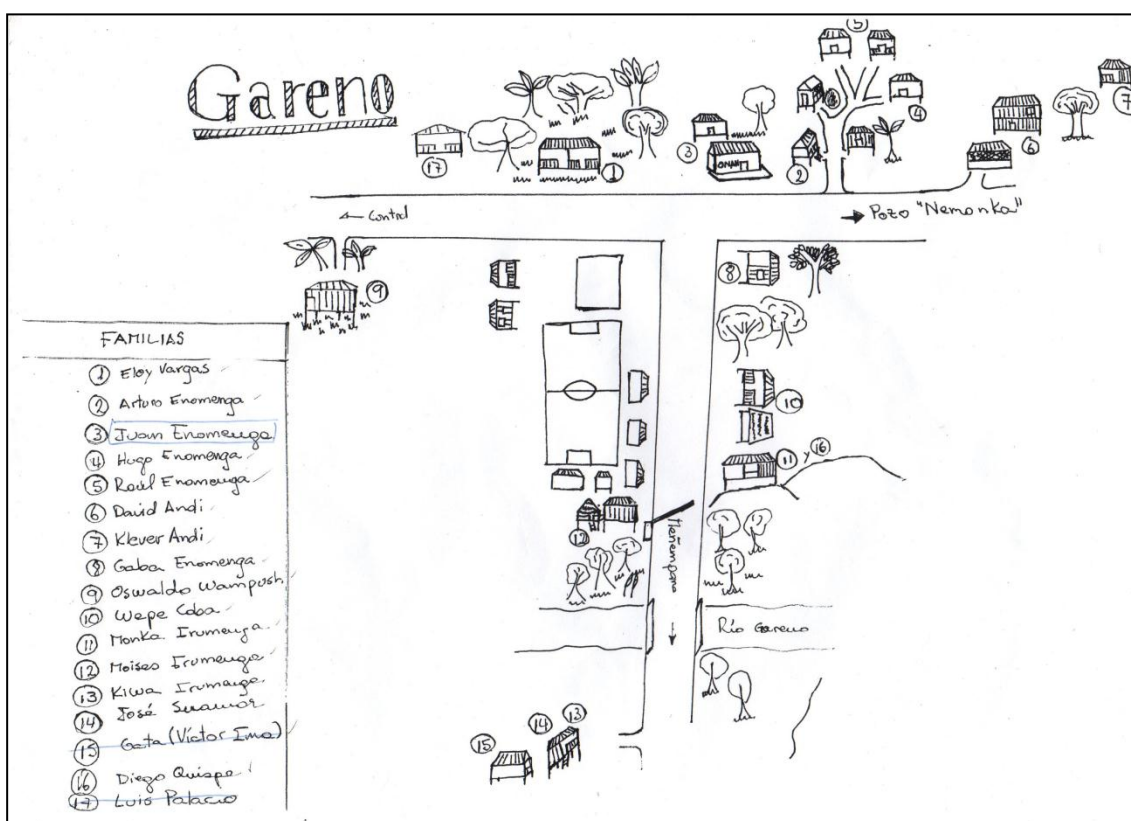 Gareno
5
7
4
3
6
17
1
ONAH
2
← Control
→ Pozo "Nemonka"
8
9
10
11 y 16
12
Meñempare
Río Gareno
14
13
15
FAMILIAS
1 Eloy Vargas
2 Arturo Enomenga
3 Juan Enomenga
4 Hugo Enomenga
5 Raúl Enomenga
6 David Andi
7 Klever Andi
8 Gaba Enomenga
9 Oswaldo Wampush
10 Wepe Coba
11 Monka Irumenga
12 Moises Irumenga
13 Kiwa Irumenga
14 José
15 Gata (Víctor Ima)
16 Diego Quispe
17 Luis Palacio